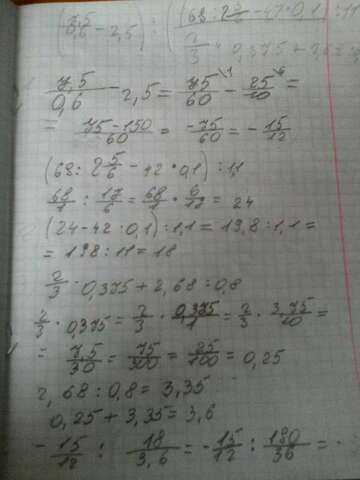 (7,5/0,6 - 2,5) : (68 : 2 5/6 - 42 · 0,1) : 1,1
2/3 · 0,375 + 2,68 : 0,8
7,5/0,6 - 2,5 = 75/60 - 25/10 =
= 75-150/60 = -75/60 = -15/12
(68 : 2 5/6 - 42 · 0,1) : 1,1
68/1 : 17/6 = 68/1 · 6/17 = 24
(24 - 42 · 0,1) : 1,1 = 19,8 : 1,1 =
= 198 : 11 = 18
2/3 · 0,375 + 2,68 : 0,8
2/3 · 0,375 = 2/3 · 0,375/1 = 2/3 · 3,75/10 =
= 7,5/30 = 75/300 = 25/100 = 0,25
2,68 : 0,8 = 3,35
0,25 + 3,35 = 3,6
-15/12 : 18/3,6 = -15/12 : 180/36 = -